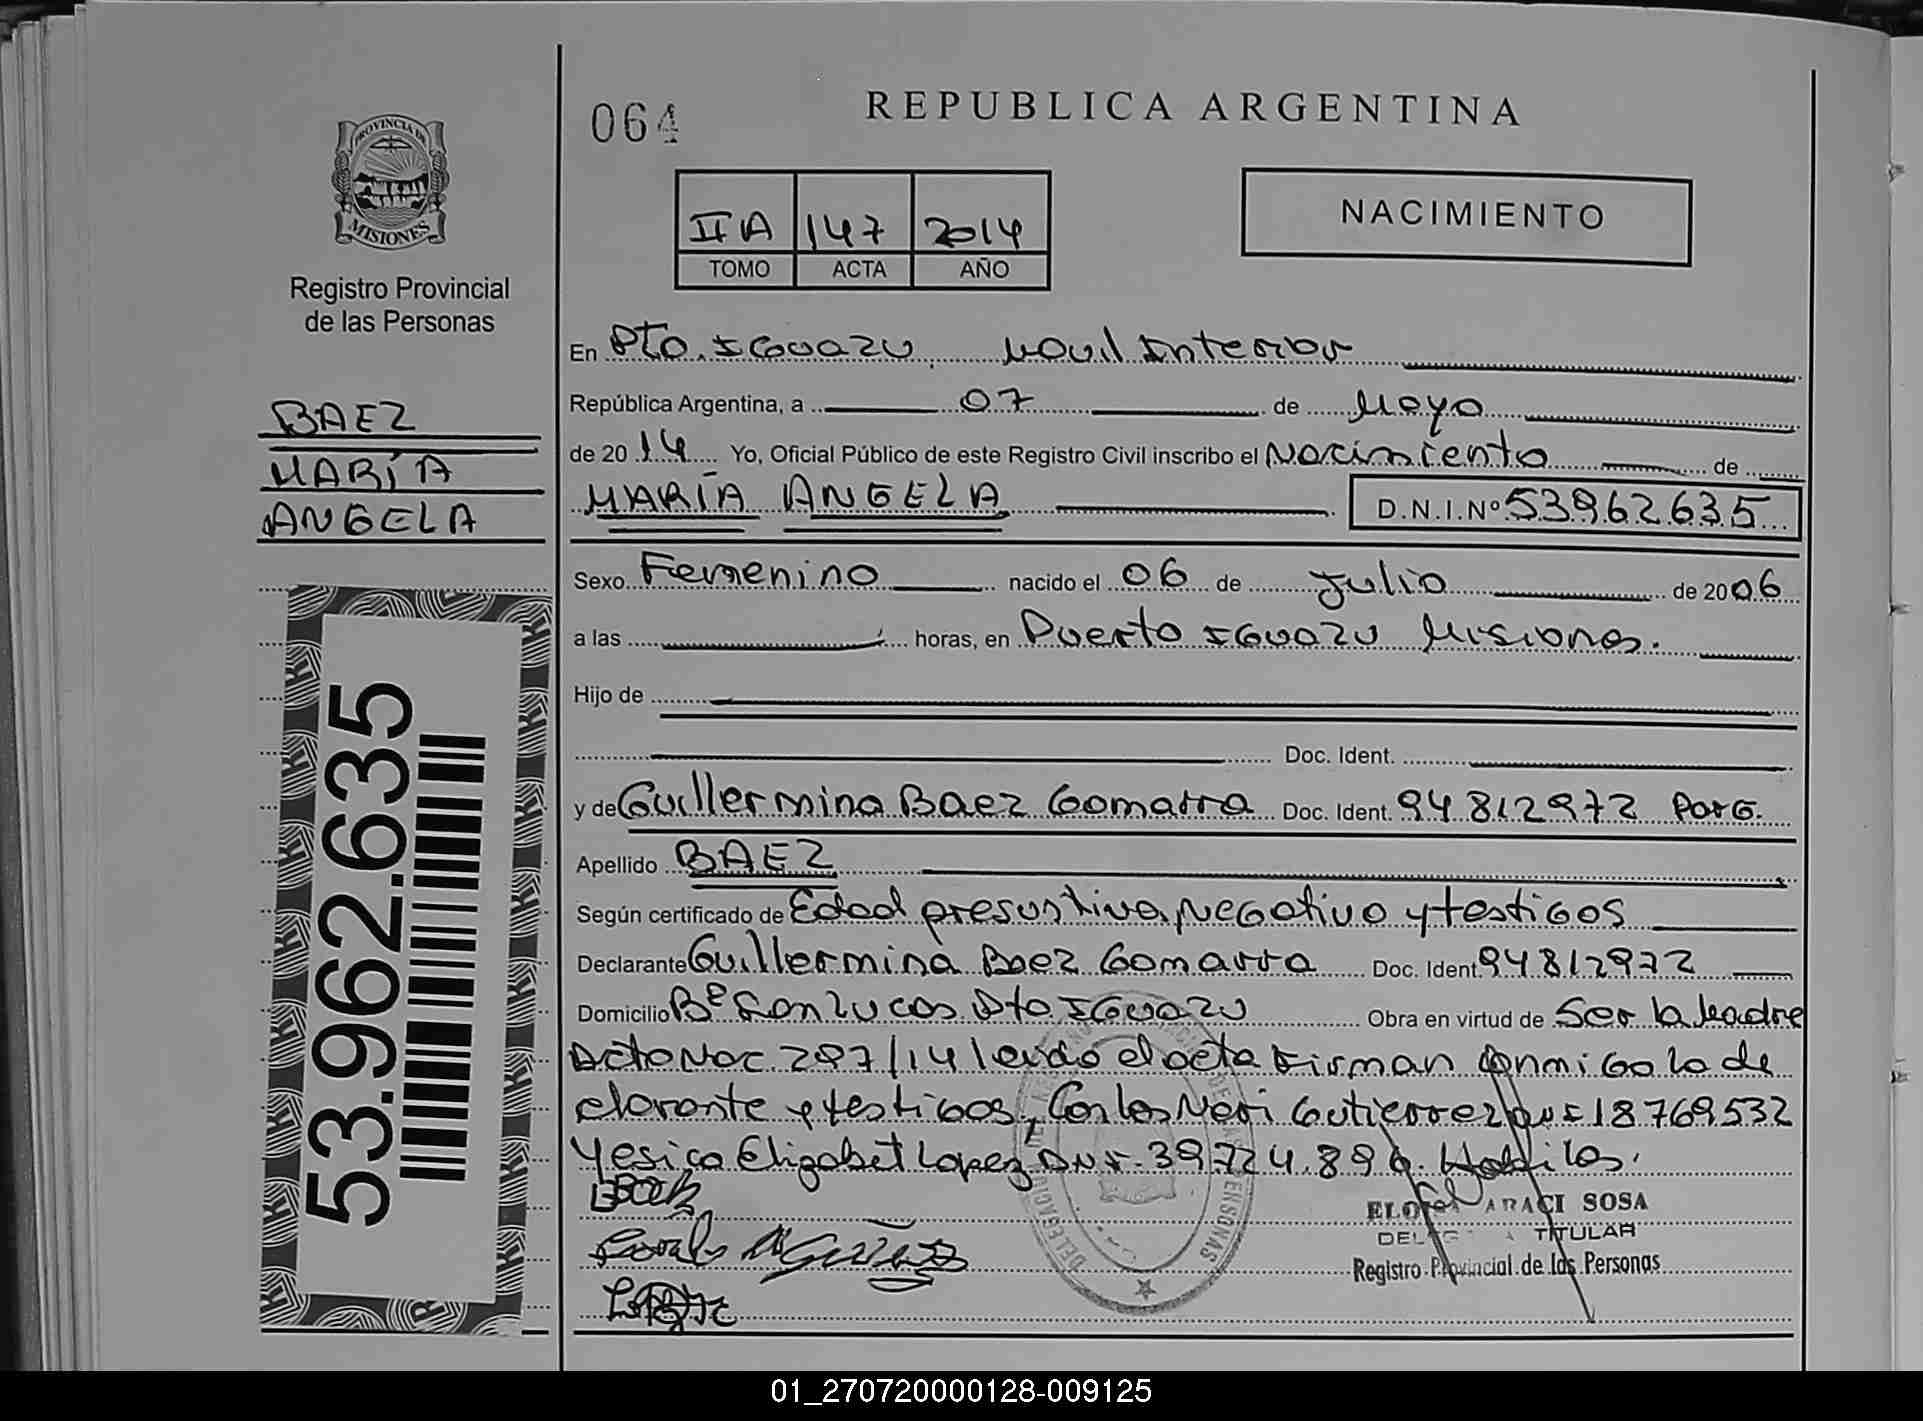 064
REPUBLICA ARGENTINA
PROVINCIA DE
MISIONES
Registro Provincial
de las Personas
II A 147 2014
TOMO ACTA AÑO
NACIMIENTO
BAEZ
MARÍA
ANGELA
53.962.635
En Pto. Iguazu, Movil Interior
República Argentina, a 07 de Mayo
de 2014 Yo, Oficial Público de este Registro Civil inscribo el Nacimiento de
MARÍA ANGELA D.N.I.Nº 53962635
Sexo Femenino nacido el 06 de Julio de 2006
a las horas, en Puerto Iguazu Misiones.
Hijo de
Doc. Ident.
y de Guillermina Baez Gomarra Doc. Ident. 94812972 Parg.
Apellido BAEZ
Según certificado de Edad presuntiva, Negativo y testigos
Declarante Guillermina Baez Gomarra Doc. Ident. 94812972
Domicilio Bº San Lucas Pto Iguazu Obra en virtud de Ser la Madre
Acto Nac 297/14 leido el acta Firman Conmigo la de
clarante y testigos, Carlos Neri Gutierrez DNI 18769532
Yesica Elizabet Lopez DNI. 39.724.896. Habiles.
ARACI SOSA
TITULAR
Registro Provincial de las Personas
01_270720000128-009125